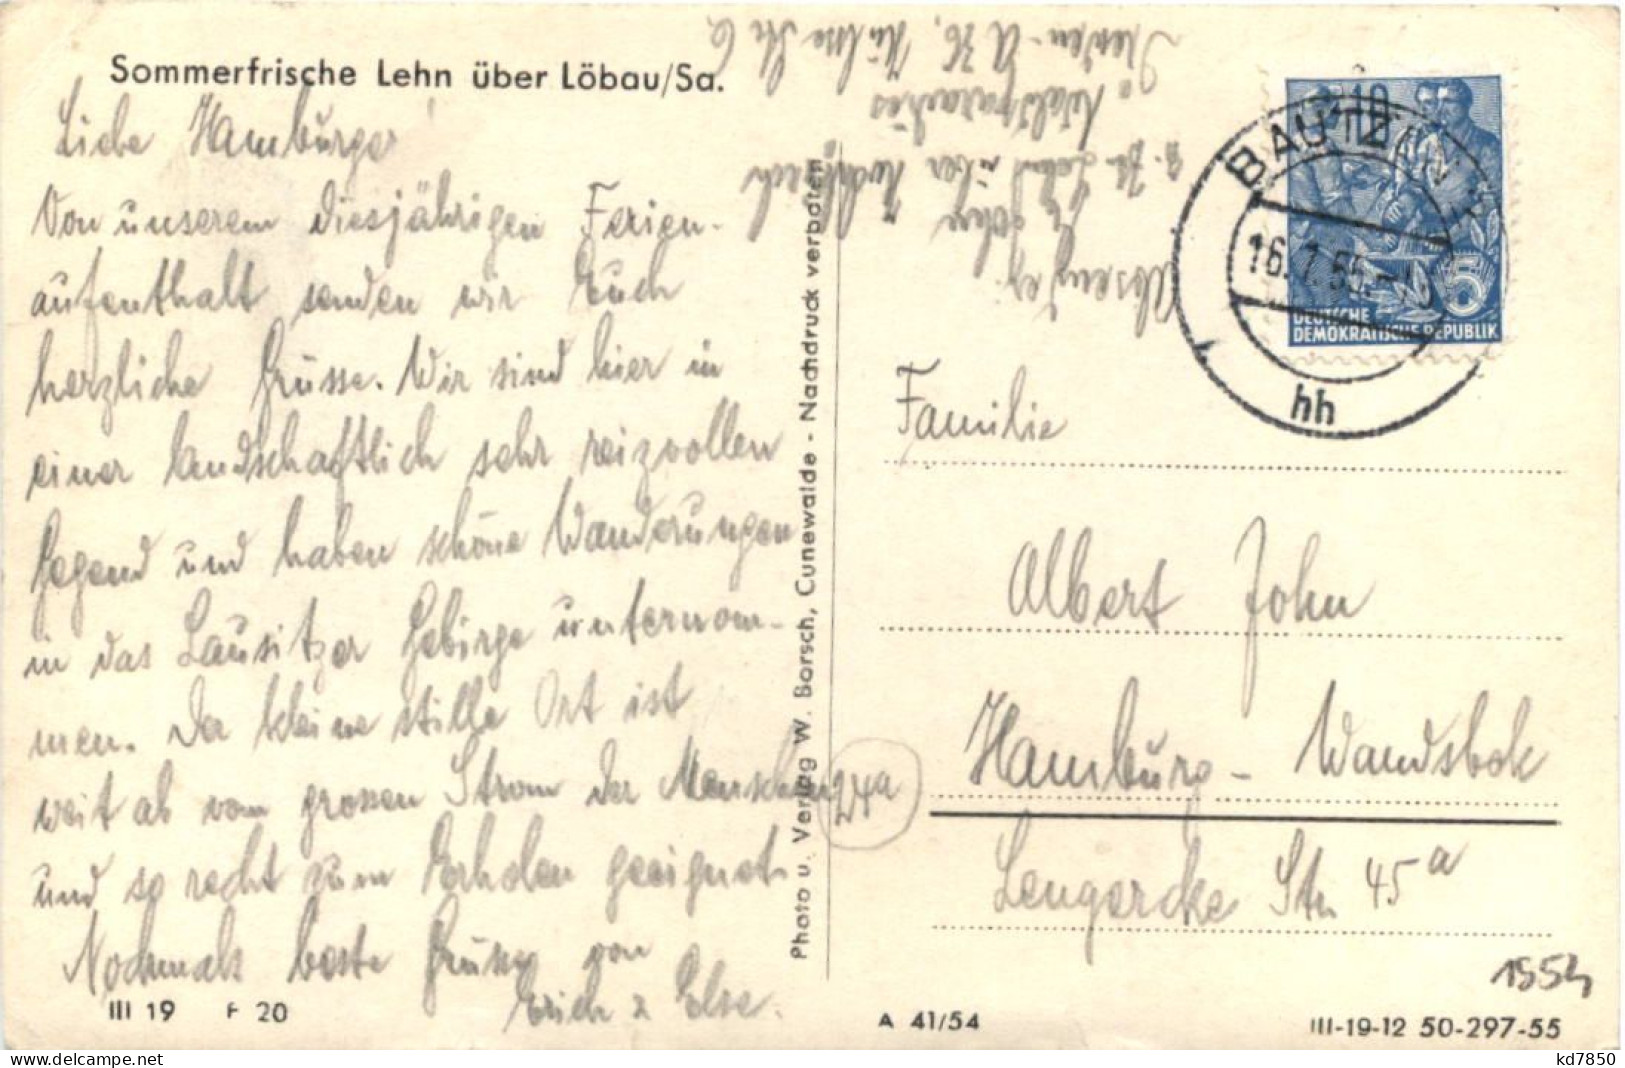 Sommerfrische Lehn über Löbau/Sa.
Liebe Hamburger!
Von unserem diesjährigen Ferien-
aufenthalt senden wir Euch
herzliche Grüsse. Wir sind hier in
einer landschaftlich sehr reizvollen
Gegend und haben schöne Wanderungen
in das Lausitzer Gebirge unternom-
men. Der kleine stille Ort ist
weit ab vom grossen Strom der Menschen
und so recht zum Erholen geeignet.
Nochmals beste Grüsse von
Erich u Else.
III 19 F 20
Photo u. Verlag W. Borsch, Cunewalde - Nachdruck verboten
Absender:
E. John
z. Zt. Lehn über Hochkirch
Waldparadies
Dresden-A 36,
BAUTZEN
16.7.55.
hh
10
5
DEUTSCHE
DEMOKRATISCHE REPUBLIK
Familie
Albert John
24a
Hamburg - Wandsbek
Lengercke Str. 45a
1554
A 41/54
III-19-12 50-297-55
kd7850